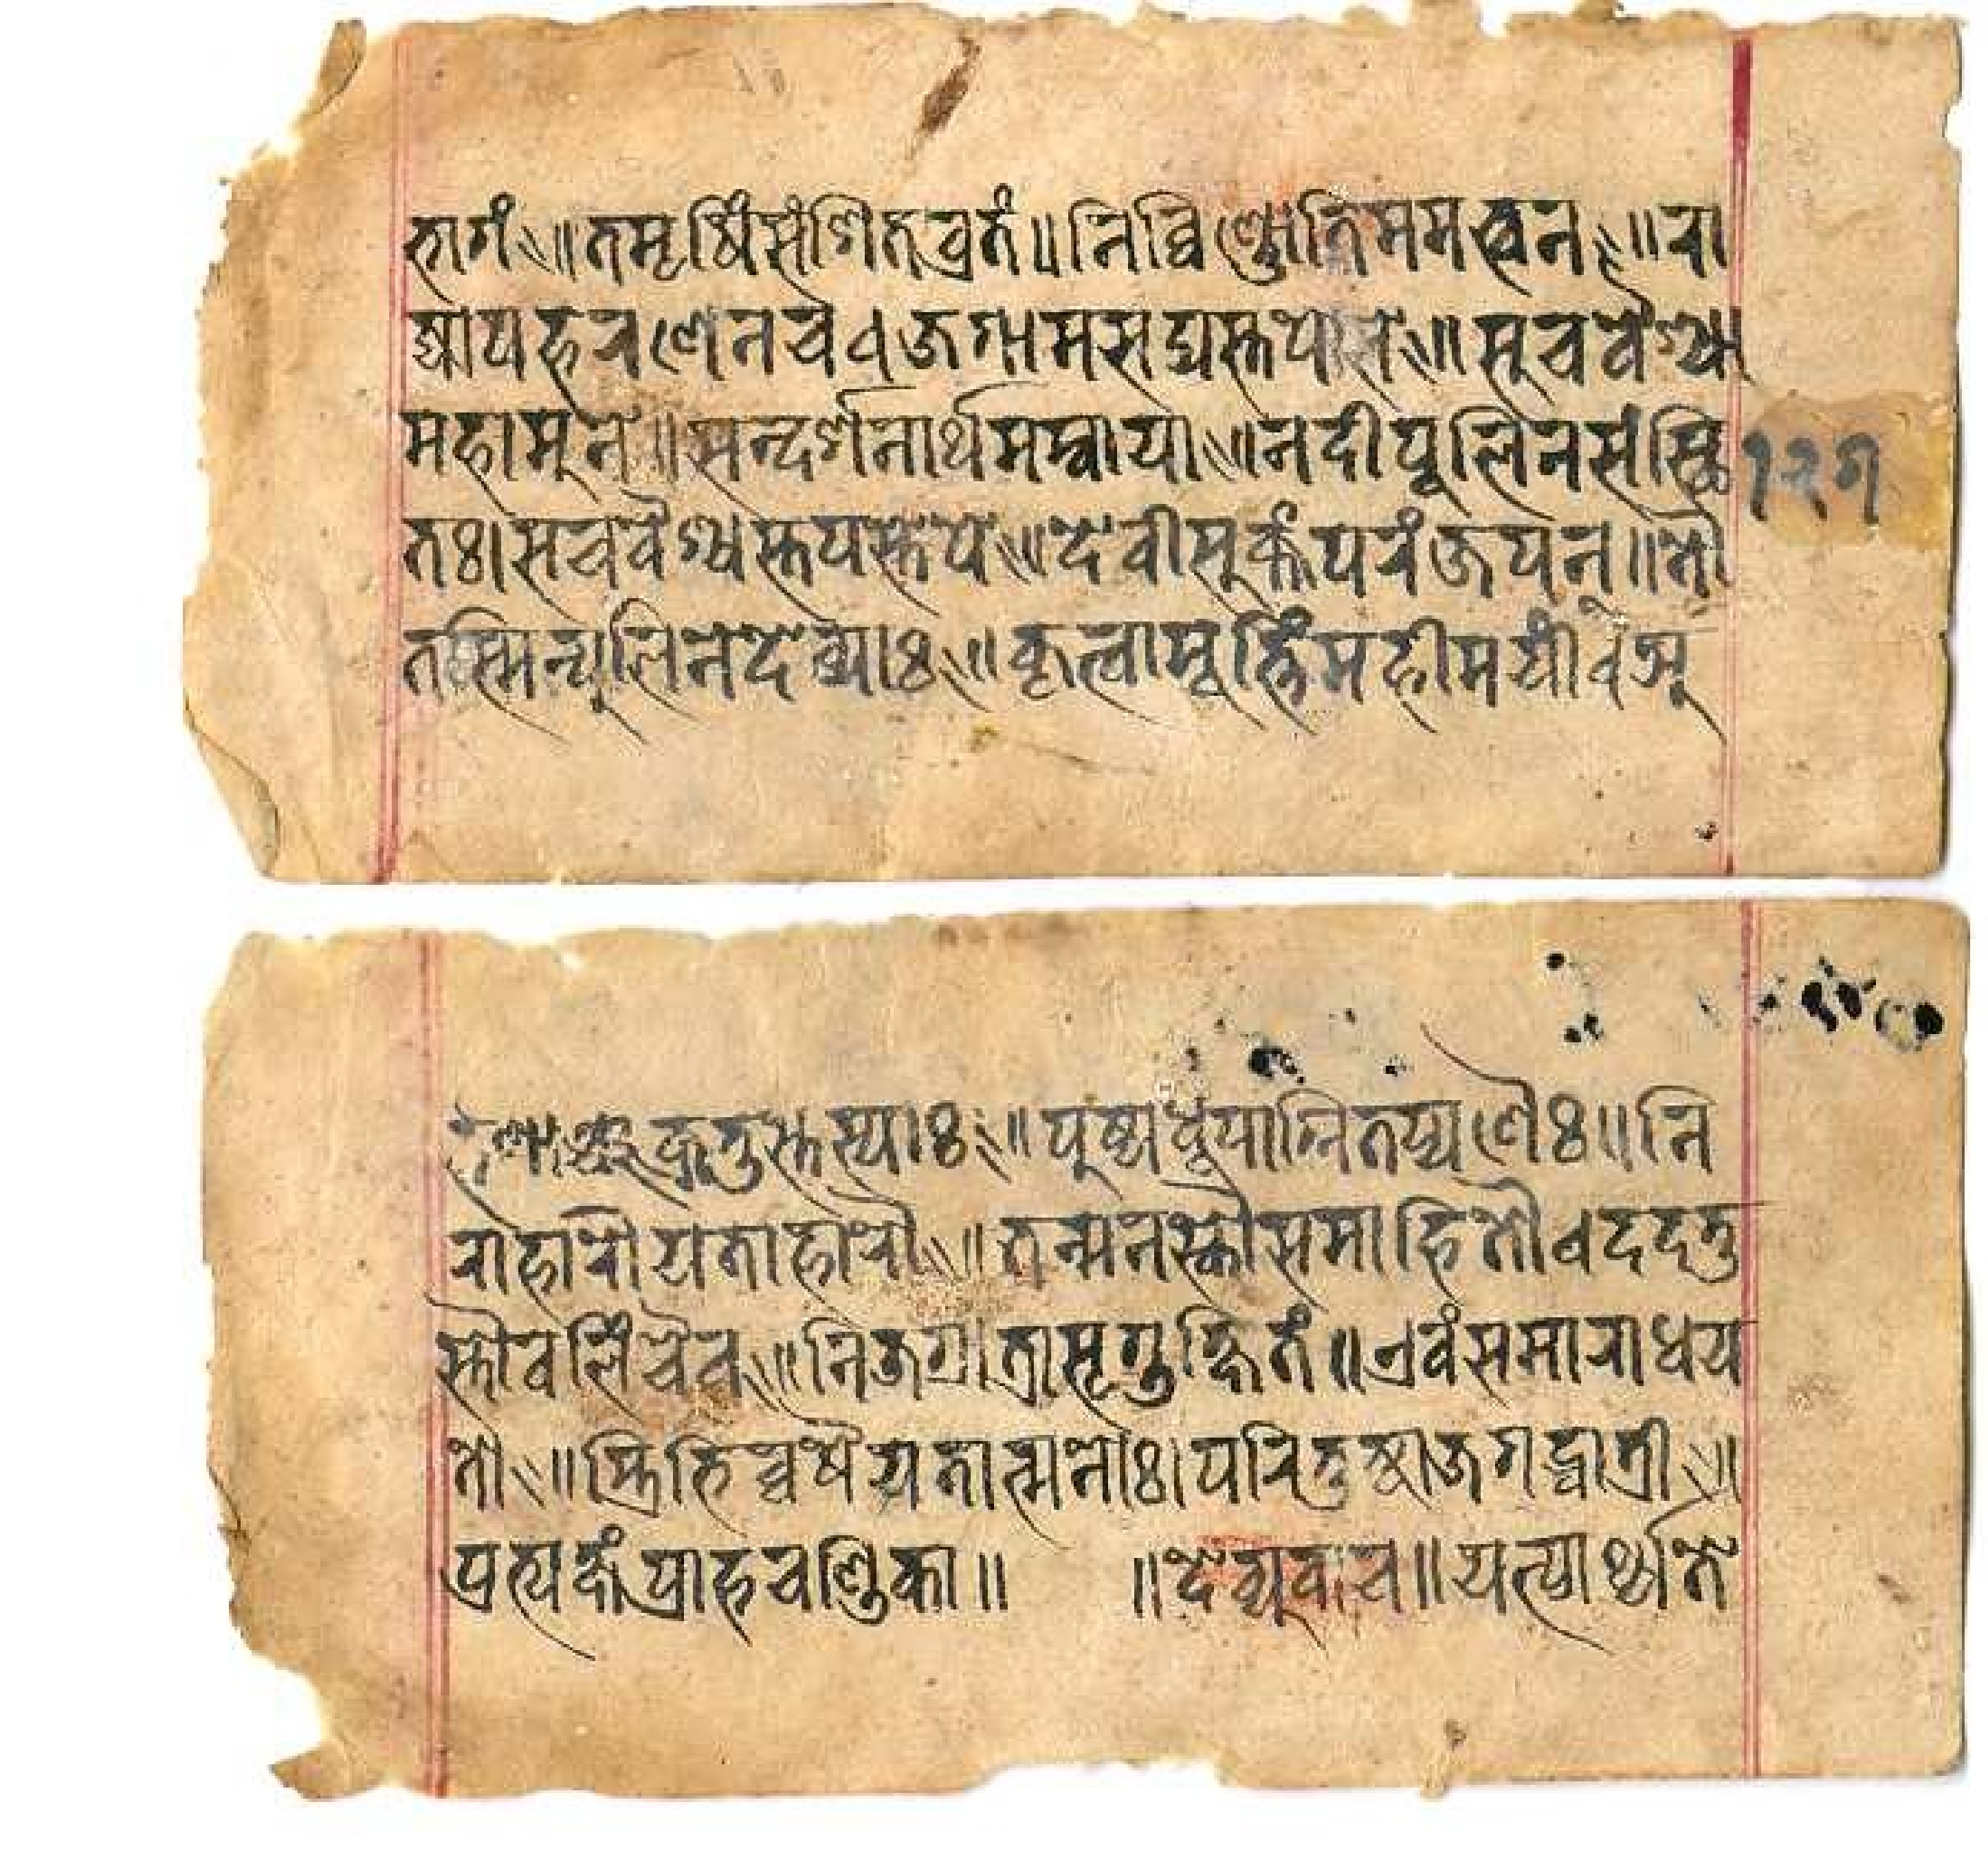 भागं॥तमृषिंसंशितव्रतं॥निर्व्विण्णोतिममत्वेन॥रा
ज्यापहरणेनचैवजगामसद्यस्तपसे॥सचवैश्य
महामुने॥सन्दर्शनार्थमम्बाया॥नदीपुलिनसंस्थि
तः।सचवैश्यस्तपस्तेपे॥देवीसूक्तंपरंजपन्॥तौ
तस्मिन्पुलिनेदेव्याः॥कृत्वामूर्त्तिंमहीमयीं।अ
र्हणाञ्चक्रतुस्तस्याः॥पुष्पधूपाग्नितर्प्पणैः॥नि
राहारौयताहारौ॥तन्मनस्कौसमाहितौ।ददतु
स्तौबलिंचैव॥निजगात्रासृगुक्षितं॥एवंसमाराधय
तो॥स्त्रिभिर्व्वर्षैयतात्मनोः।परितुष्टाजगद्धात्री॥
प्रत्यक्षंप्राहचण्डिका॥ ॥देव्युवाच॥यत्प्रार्थ्यते